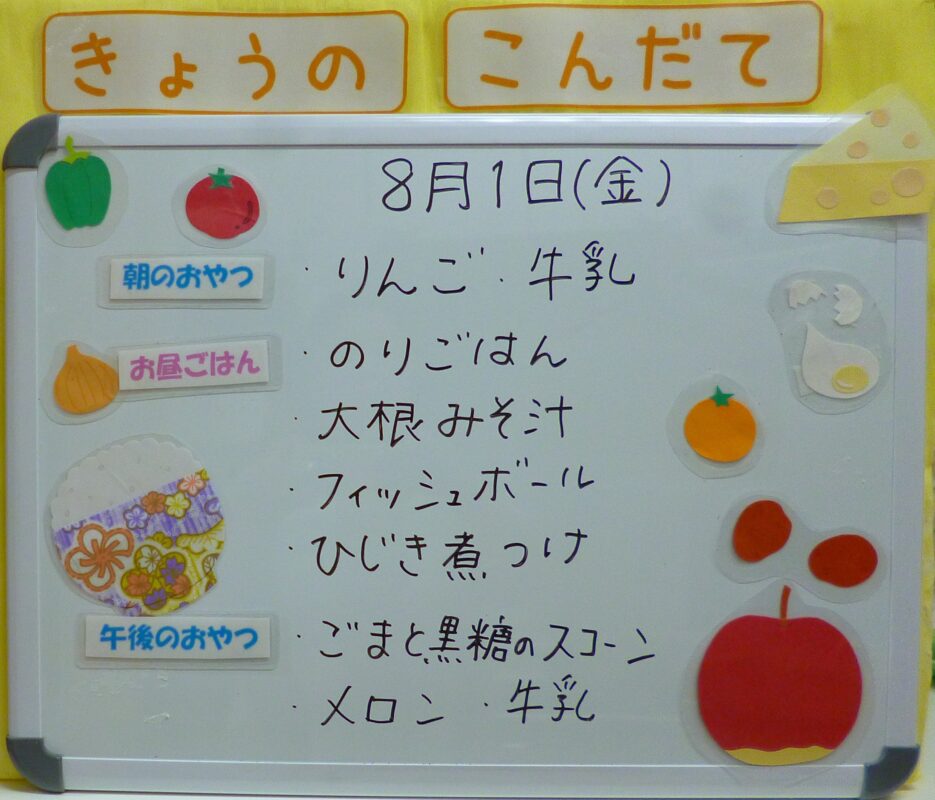 きょうの こんだて
8月1日(金)
朝のおやつ ・りんご・牛乳
お昼ごはん ・のりごはん
・大根みそ汁
・フィッシュボール
・ひじき煮つけ
午後のおやつ ・ごまと黒糖のスコーン
・メロン・牛乳